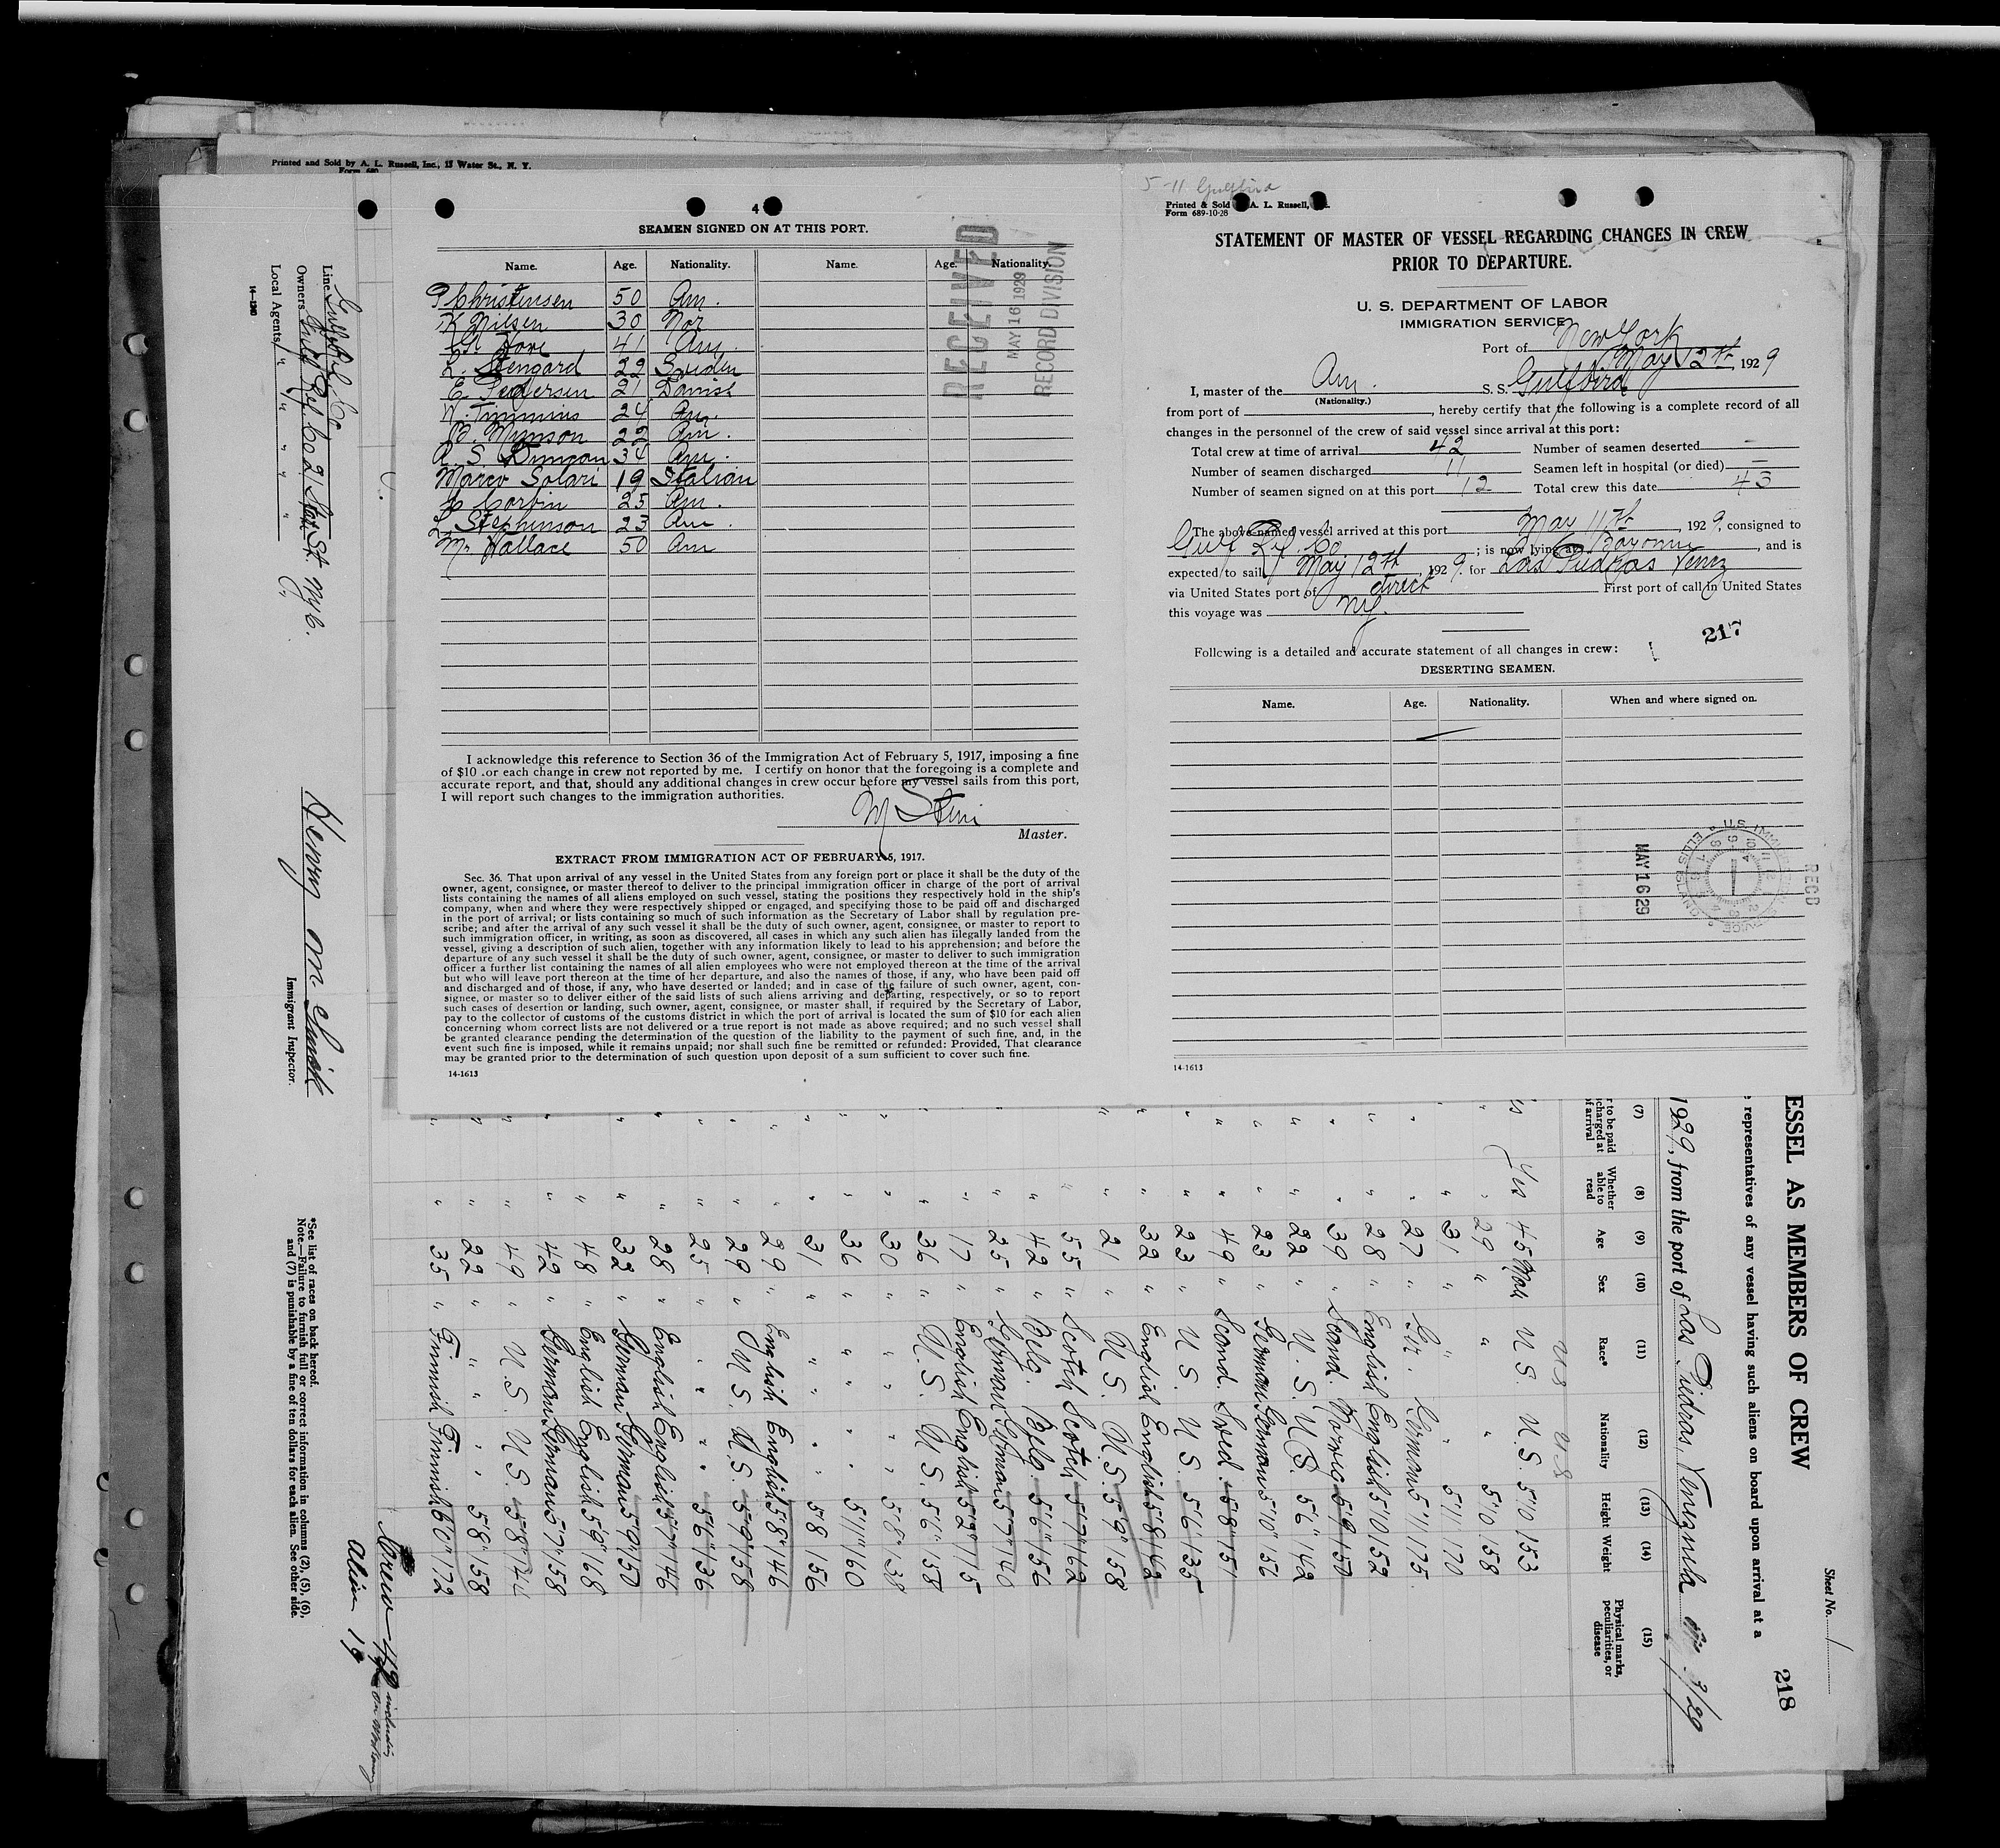 Printed and Sold by A. L. Russell, Inc., 15 Water St., N. Y.
Form 680
4
SEAMEN SIGNED ON AT THIS PORT.
Name. Age. Nationality. Name. Age. Nationality.
P Christensen 50 Am.
K Nilsen 30 Nor
41 Am.
L. Stengard 22 Sweden
E Pedersen 21 Danish
W. Timmins 24 Am.
B. Munson 22 Am.
R. S. Dungan 34 Am.
Marco Solari 19 Italian
Corbin 25 Am.
Stephinson 23 Am.
Mr Wallace 50 Am
RECEIVED
MAY 16 1929
RECORD DIVISION
I acknowledge this reference to Section 36 of the Immigration Act of February 5, 1917, imposing a fine
of $10 .or each change in crew not reported by me. I certify on honor that the foregoing is a complete and
accurate report, and that, should any additional changes in crew occur before my vessel sails from this port,
I will report such changes to the immigration authorities.
Master.
EXTRACT FROM IMMIGRATION ACT OF FEBRUARY 5, 1917.
Sec. 36. That upon arrival of any vessel in the United States from any foreign port or place it shall be the duty of the
owner, agent, consignee, or master thereof to deliver to the principal immigration officer in charge of the port of arrival
lists containing the names of all aliens employed on such vessel, stating the positions they respectively hold in the ship's
company, when and where they were respectively shipped or engaged, and specifying those to be paid off and discharged
in the port of arrival; or lists containing so much of such information as the Secretary of Labor shall by regulation pre-
scribe; and after the arrival of any such vessel it shall be the duty of such owner, agent, consignee, or master to report to
such immigration officer, in writing, as soon as discovered, all cases in which any such alien has illegally landed from the
vessel, giving a description of such alien, together with any information likely to lead to his apprehension; and before the
departure of any such vessel it shall be the duty of such owner, agent, consignee, or master to deliver to such immigration
officer a further list containing the names of all alien employees who were not employed thereon at the time of the arrival
but who will leave port thereon at the time of her departure, and also the names of those, if any, who have been paid off
and discharged and of those, if any, who have deserted or landed; and in case of the failure of such owner, agent, con-
signee, or master so to deliver either of the said lists of such aliens arriving and departing, respectively, or so to report
such cases of desertion or landing, such owner, agent, consignee, or master shall, if required by the Secretary of Labor,
pay to the collector of customs of the customs district in which the port of arrival is located the sum of $10 for each alien
concerning whom correct lists are not delivered or a true report is not made as above required; and no such vessel shall
be granted clearance pending the determination of the question of the liability to the payment of such fine, and, in the
event such fine is imposed, while it remains unpaid; nor shall such fine be remitted or refunded: Provided, That clearance
may be granted prior to the determination of such question upon deposit of a sum sufficient to cover such fine.
14-1613
5-11 Gulfbird
Printed & Sold A. L. Russell,
Form 689-10-28
STATEMENT OF MASTER OF VESSEL REGARDING CHANGES IN CREW
PRIOR TO DEPARTURE.
U. S. DEPARTMENT OF LABOR
IMMIGRATION SERVICE
Port of New York
May 12th, 1929
I, master of the Am. S. S. Gulfbird
(Nationality.)
from port of , hereby certify that the following is a complete record of all
changes in the personnel of the crew of said vessel since arrival at this port:
Total crew at time of arrival 42 Number of seamen deserted —
Number of seamen discharged 11 Seamen left in hospital (or died) —
Number of seamen signed on at this port 12 Total crew this date 43
The above-named vessel arrived at this port May 11th, 1929. consigned to
Gulf Ref. Co. ; is now lying at Bayonne , and is
expected to sail May 12th, 1929. for Las Piedras Venez
via United States port of direct First port of call in United States
this voyage was NY.
217
Following is a detailed and accurate statement of all changes in crew:
DESERTING SEAMEN.
Name. Age. Nationality. When and where signed on.
MAY 16 29
RECD
14-1613
Line Gulf Ref Co
Owners Gulf Ref Co 21 State St. NYC.
Local Agents " " " " "
14-1240
Immigrant Inspector.
*See list of races on back hereof.
Note.—Failure to furnish full or correct information in columns (2), (5), (6),
and (7) is punishable by a fine of ten dollars for each alien. See other side.
Crew 42 including
Alien 19
Sheet No. 1
218
ESSEL AS MEMBERS OF CREW
representatives of any vessel having such aliens on board upon arrival at a
1929, from the port of Las Piedras, Venezuela
(7) (8) (9) (10) (11) (12) (13) (14) (15)
r to be paid
scharged at
of arrival
Whether
able to
read
Age Sex Race* Nationality Height Weight
Physical marks,
peculiarities, or
disease
U S U S
Yes 45 Male U S. U.S. 5'10 153
" 29 " " " 5'10 158
" 31 " " " 5'11 170
" 27 " Ger. German 5'11 175
" 28 " English English 5'10 152
" 39 " Scand. Norweg 5'9 150
" 22 " U.S. U.S. 5'6" 142
" 23 " German German 5'10" 156
" 49 " Scand. Swed. 5'8" 151
" 23 " U S. U S. 5'6" 135
" 32 " English English 5'8" 162
" 21 " U S. U.S. 5'9" 158
" 55 " Scotch Scotch 5'7" 162
" 42 " Belg. Belg. 5'6" 156
" 25 " German German 5'7" 140
" 17 " English English 5'2" 115
" 36 " U.S. U.S. 5'6" 158
" 30 " " " 5'8" 138
" 36 " " " 5'11" 160
" 31 " " " 5'8 156
" 29 " English English 5'8" 146
" 29 " U S. U.S. 5'9" 158
" 25 " " " 5'6" 136
" 28 " English English 5'7" 146
" 32 " German German 5'9" 150
" 48 " English English 5'9" 168
" 42 " German German 5'7" 158
" 49 " U.S. U.S. 5'8" 144
" 22 " " " 5'8" 158
" 35 " Finnish Finnish 6'0" 172